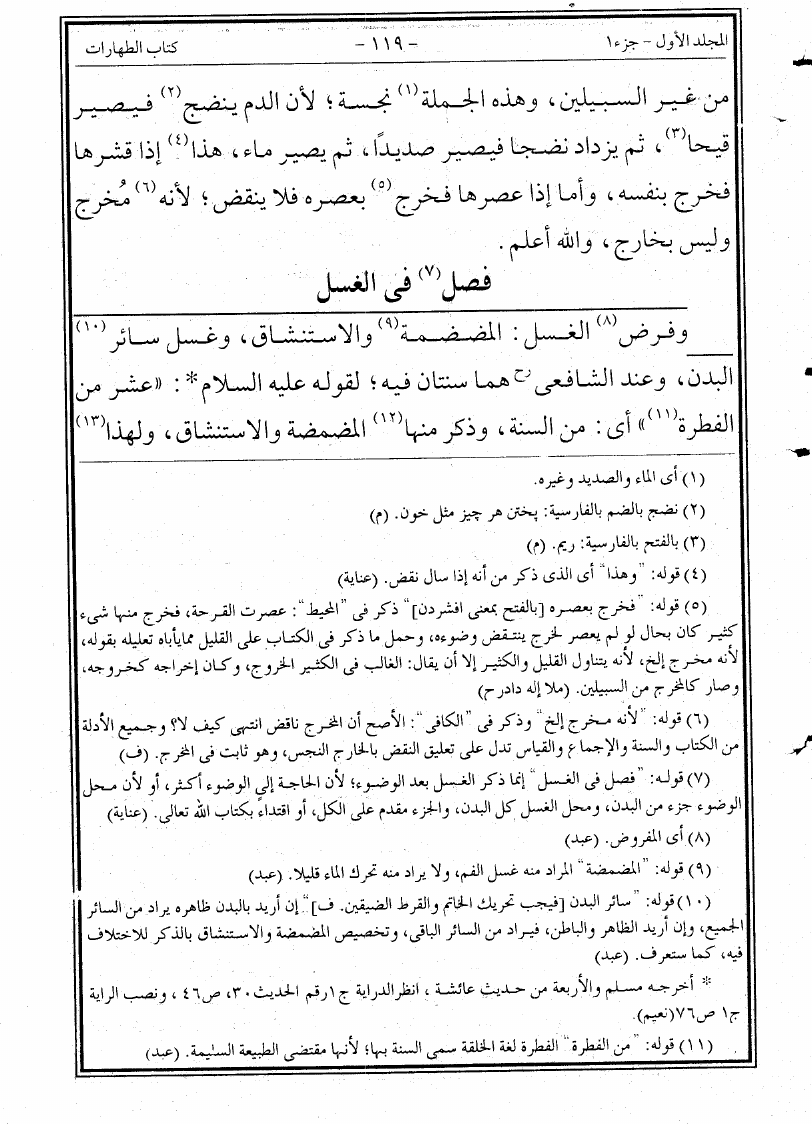 المجلد الأول - جزء١ - ١١٩ - كتاب الطهارات
من غير السبيلين، وهذه الجملة(١) نجسة؛ لأن الدم ينضج(٢) فيصير
قيحا(٣)، ثم يزداد نضجا فيصير صديدًا، ثم يصير ماء، هذا(٤) إذا قشرها
فخرج بنفسه، وأما إذا عصرها فخرج(٥) بعصره فلا ينقض؛ لأنه(٦) مُخرج
وليس بخارج، والله أعلم.
فصل(٧) فى الغسل
وفرض(٨) الغسل: المضمضمة(٩) والاستنشاق، وغسل سائر(١٠)
البدن، وعند الشافعى رح هما سنتان فيه؛ لقوله عليه السلام*: «عشر من
الفطرة(١١)» أى: من السنة، وذكر منها(١٢) المضمضة والاستنشاق، ولهذا(١٣)
(١) أى الماء والصديد وغيره.
(٢) نضج بالضم بالفارسية: پختن هر چيز مثل خون. (م)
(٣) بالفتح بالفارسية: ريم. (م)
(٤) قوله: "وهذا" أى الذى ذكر من أنه إذا سال نقض. (عناية)
(٥) قوله: "فخرج بعصره [بالفتح بمعنى افشردن]" ذكر فى "المحيط": عصرت القرحة، فخرج منها شىء
كثير كان بحال لو لم يعصر لخرج ينتقض وضوءه، وحمل ما ذكر فى الكتاب على القليل ممايأباه تعليله بقوله،
لأنه مخرج إلخ، لأنه يتناول القليل والكثير إلا أن يقال: الغالب فى الكثير الخروج، وكان إخراجه كخروجه،
وصار كالمخرج من السبيلين. (ملا إله دادرح)
(٦) قوله: "لأنه مخرج إلخ" وذكر فى "الكافى": الأصح أن المخرج ناقض انتهى كيف لا؟ وجميع الأدلة
من الكتاب والسنة والإجماع والقياس تدل على تعليق النقض بالخارج النجس، وهو ثابت فى المخرج. (ف)
(٧) قوله: "فصل فى الغسل" إنما ذكر الغسل بعد الوضوء؛ لأن الحاجة إلى الوضوء أكثر، أو لأن محل
الوضوء جزء من البدن، ومحل الغسل كل البدن، والجزء مقدم على الكل، أو اقتداء بكتاب الله تعالى. (عناية)
(٨) أى المفروض. (عبد)
(٩) قوله: "المضمضة" المراد منه غسل الفم، ولا يراد منه تحرك الماء قليلا. (عبد)
(١٠) قوله: "سائر البدن [فيجب تحريك الخاتم والقرط الضيقين. ف]" إن أريد بالبدن ظاهره يراد من السائر
الجميع، وإن أريد الظاهر والباطن، فيراد من السائر الباقى، وتخصيص المضمضة والاستنشاق بالذكر للاختلاف
فيه، كما ستعرف. (عبد)
* أخرجه مسلم والأربعة من حديث عائشة، انظرالدراية ج١رقم الحديث٣٠، ص٤٦، ونصب الراية
ج١ ص٧٦(نعيم).
(١١) قوله: "من الفطرة" الفطرة لغة الخلقة سمى السنة بها؛ لأنها مقتضى الطبيعة السليمة. (عبد)